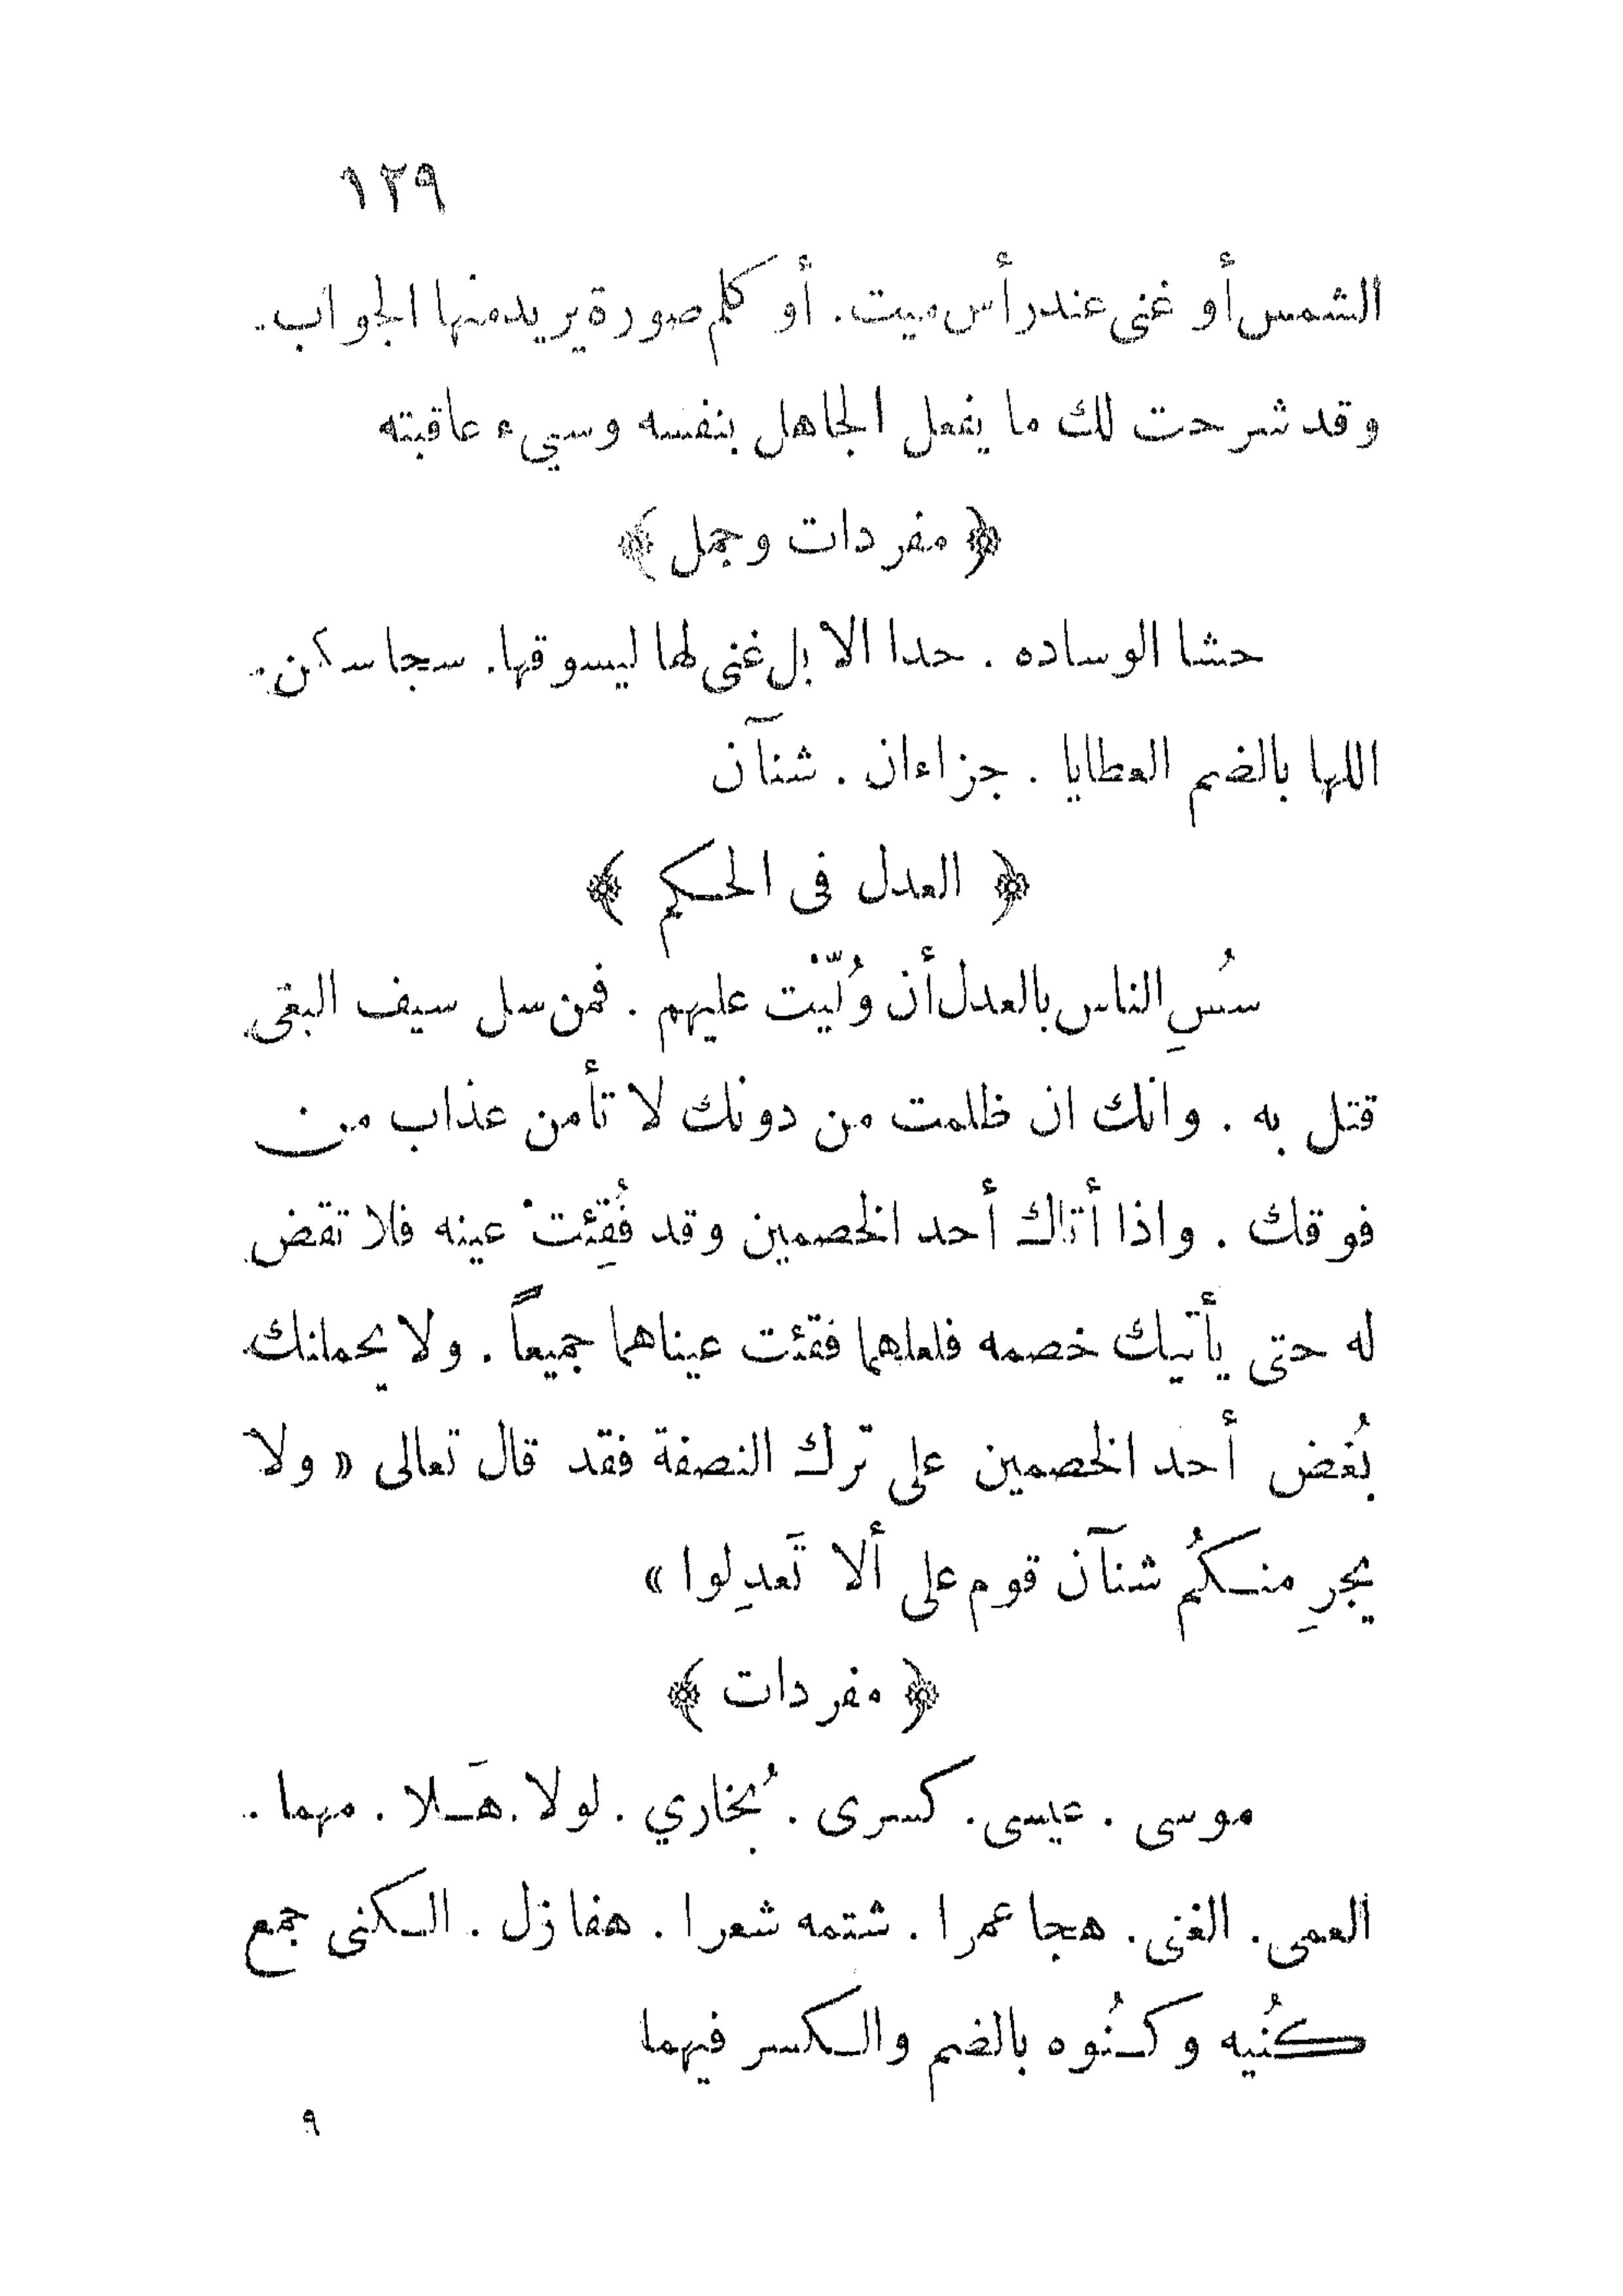 ١٢٩
الشمس أو غنى عند رأس ميت . أو كلم صورة يريد منها الجواب .
وقد شرحت لك ما يفعل الجاهل بنفسه وسيء عاقبته
﴿ مفردات وجمل ﴾
حشا الوساده . حدا الابل غنى لها ليسوقها . سجا سكن .
اللها بالضم العطايا . جزاءان . شنآن
﴿ العدل فى الحكم ﴾
سُسِ الناس بالعدل أن وُلّيْت عليهم . فمن سل سيف البغى
قتل به . وانك ان ظلمت من دونك لا تأمن عذاب من
فوقك . واذا أتاك أحد الخصمين وقد فُقِئتْ عينه فلا تقض
له حتى يأتيك خصمه فلعلهما فقئت عيناهما جميعاً . ولا يحملنك
بُغض أحد الخصمين على ترك النصفة فقد قال تعالى « ولا
يجرِ منكُم شنآن قوم على ألا تَعدِلوا »
﴿ مفردات ﴾
موسى . عيسى . كسرى . بُخاري . لولا . هَلا . مهما .
العمى . الغنى . هجا عمرا . شتمه شعرا . هفا زل . الكنى جمع
كُنيه وكُنوه بالضم والكسر فيهما
٩